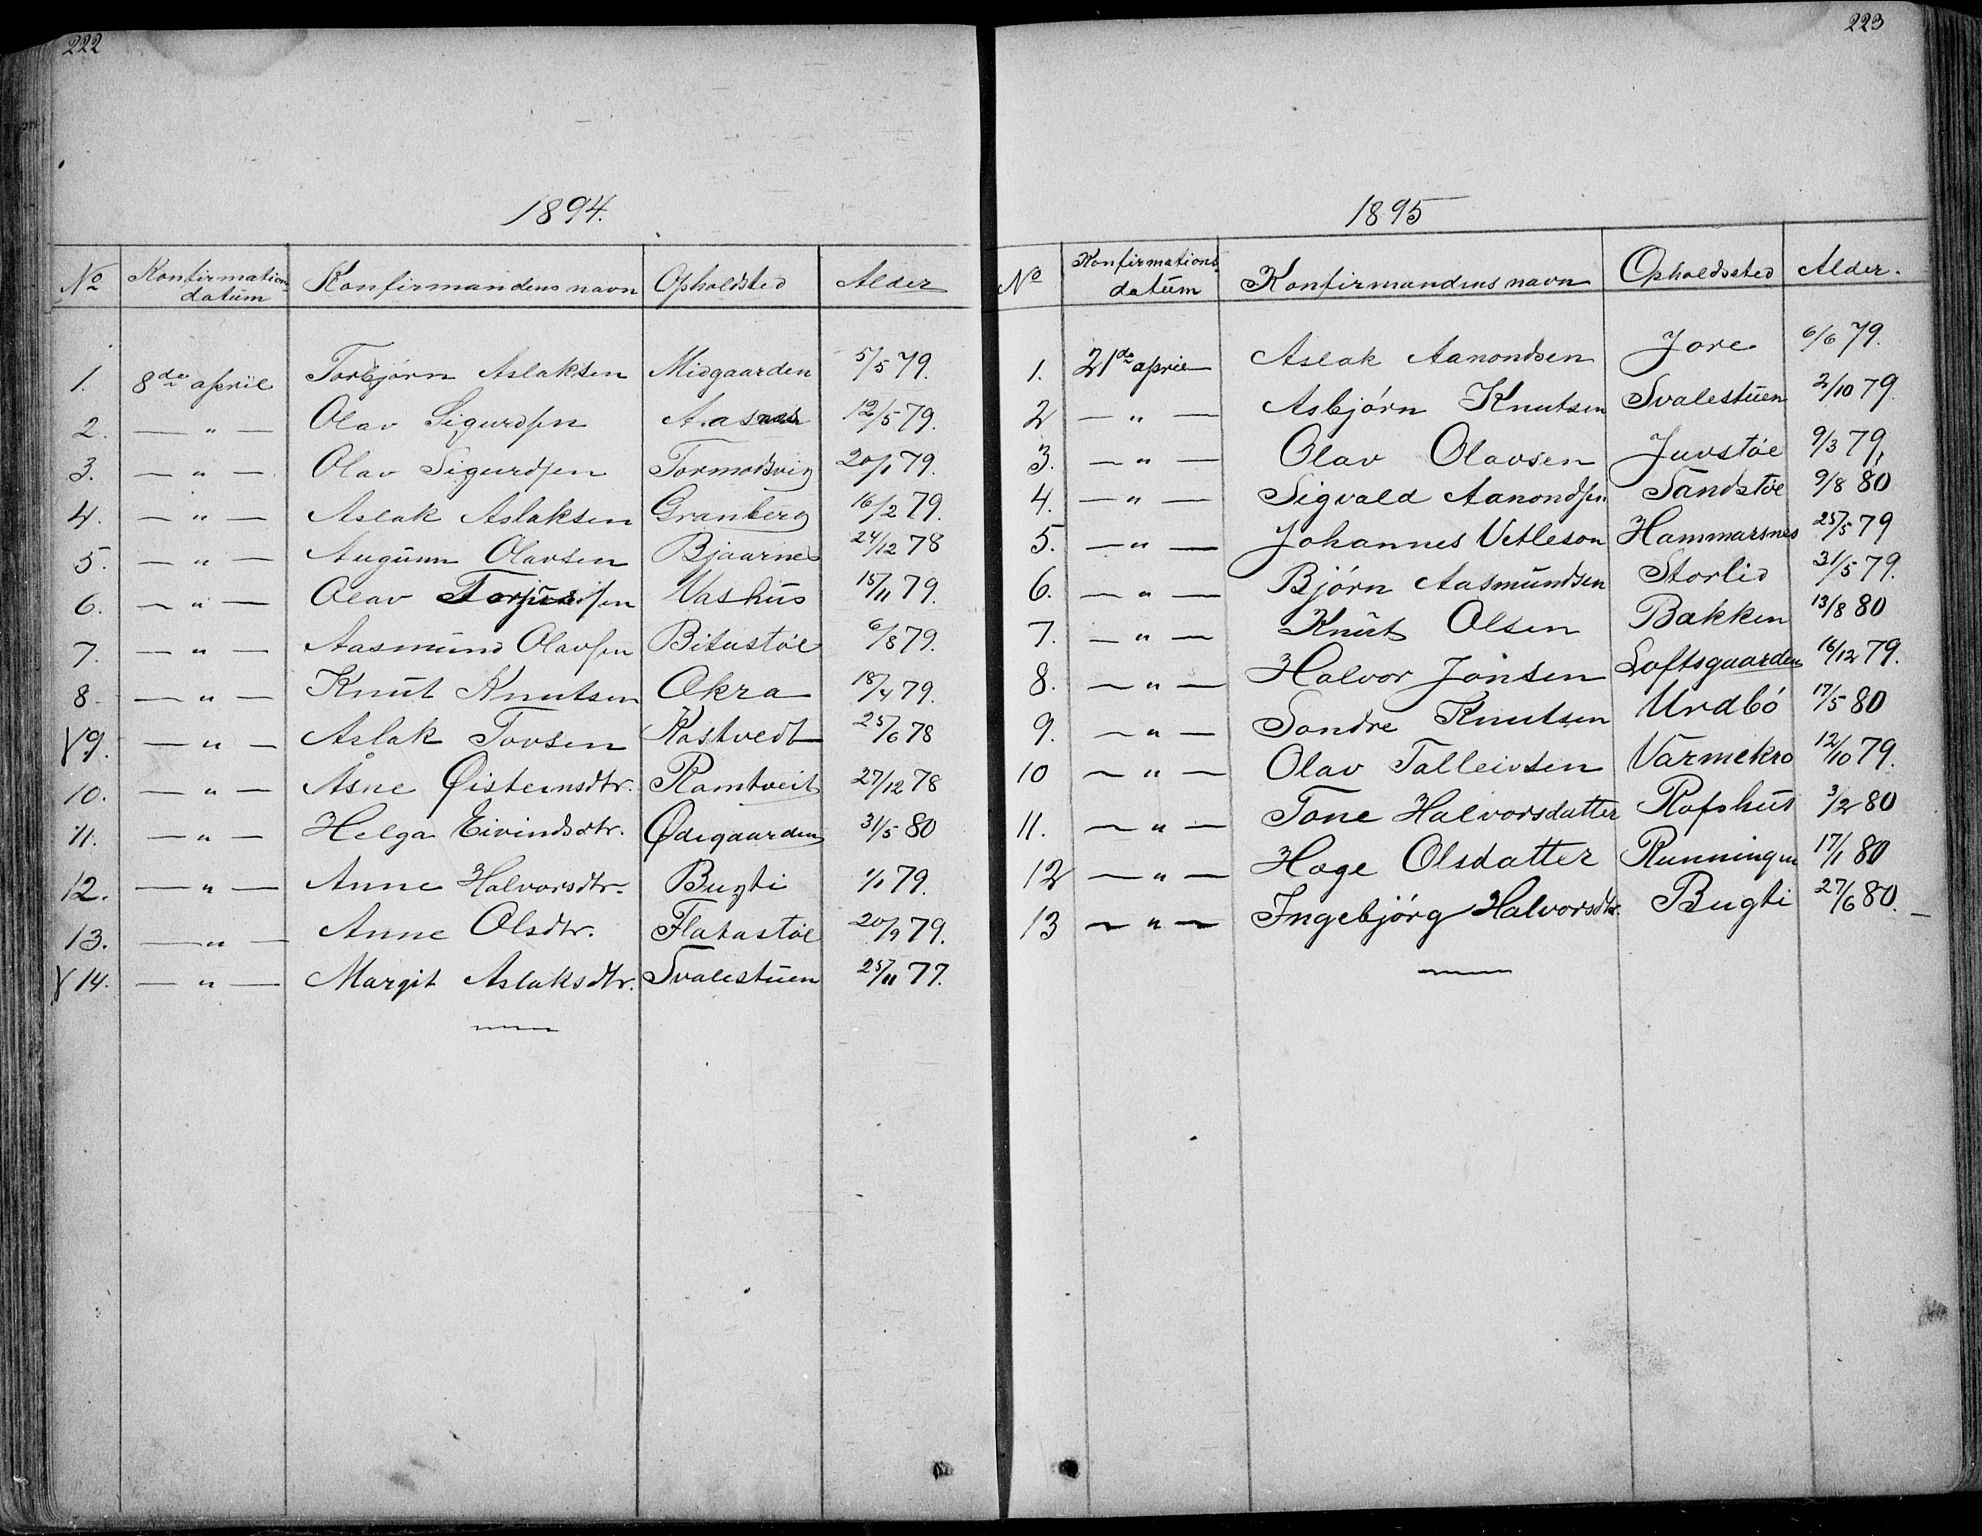 222
1894.
No Konfirmations- datum Konfirmandens navn Opholdsted Alder
1. 8de april Torbjørn Aslaksen Midgaarden 5/5 79.
2. — " — Olav Sigurdsen 12/5 79.
3. — " — Olav Sigurdsen Tormodsvig 20/1 79.
4. — " — Aslak Aslaksen Granberg 16/2 79.
5. — " — Augunn Olavsen Bjaarnes 24/12 78
6. — " — Olav Torjussen Vashus 15/11 79.
7. — " — Aasmund Olavsen Bitustøl 6/8 79.
8 — " — Knut Knutsen Okra 18/4 79.
9. — " — Aslak Tovsen Kostvedt 25/6 78
10. — " — Åsne Øisteinsdtr. Romtveit 27/12 78
11. — " — Helga Eivindsdtr. Ødegaarden 31/5 80
12. — " — Anne Halvorsdtr. Bugti 1/1 79.
13. — " — Anne Olsdtr. Flatastøl 20/9 79.
14. — " — Margit Aslaksdtr. Svalestuen 25/11 77.
223
1895
No Konfirmations- datum Konfirmandens navn Opholdssted Alder.
1. 21de april Aslak Aanondsen Jore 6/6 79.
2 — " — Asbjørn Knutsen Svalestuen 2/10 79.
3. — " — Olav Olavsen Juvstøl 9/3 79,
4. — " — Sigvald Aanondsen Sandstøl 9/8 80
5. — " — Johannes Vetleson Hammarsnes 25/5 79
6. — " — Bjørn Aasmundsen Storlid 31/5 79.
7. — " — Knut Olsen Bakken 13/8 80
8. — " — Halvor Jonsen Loftsgaarden 16/12 79.
9. — " — Sondre Knutsen Urdbó 17/5 80
10 — " — Olav Talleivsen Varmekro 12/10 79.
11. — " — Tone Halvorsdatter Rofshus 3/2 80
12 — " — Hoge Olsdatter Runningen 17/1 80
13 — " — Ingebjórg Halvorsdtr. Bugti 27/6 80.